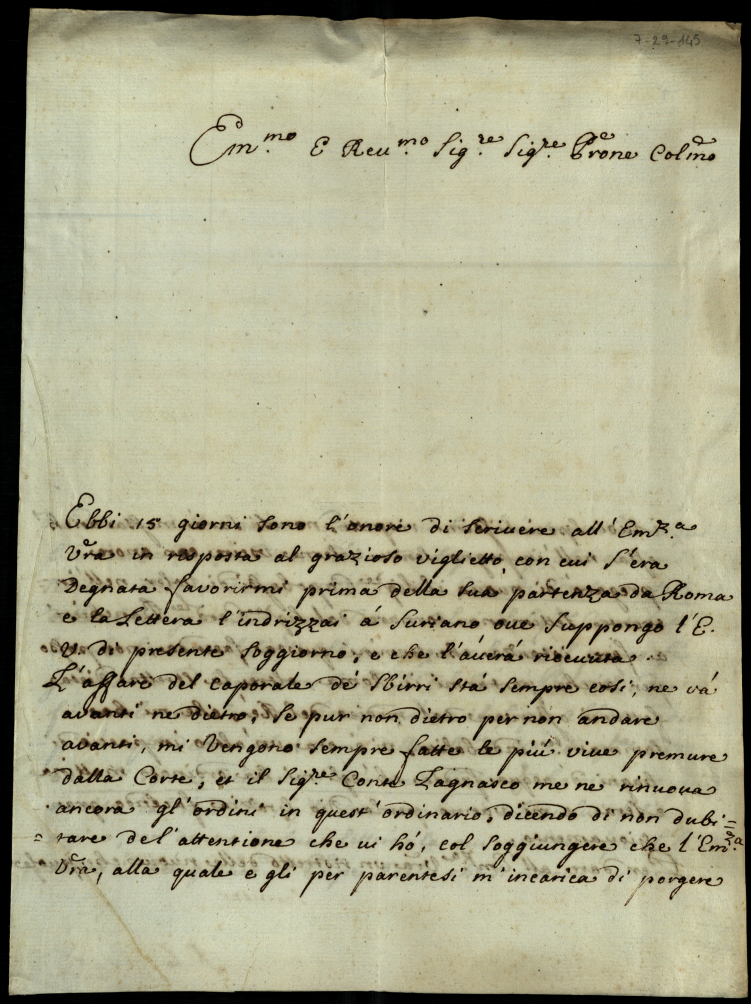 7-29-145
Em.mo E Reu.mo Sig.re Sig.re Prone Colmo
Ebbi 15 giorni sono l'onore di scriuere all'Em.za
Vra in risposta al grazioso viglietto, con cui s'era
Degnata favorirmi prima della sua partenza da Roma
e la Lettera l'indrizzai á Suriano oue suppongo l'E.
V. di presente soggiorno, e che l'auerá riceuuta.
L'affare del caporale dé Sbirri stá sempre cosi, ne vá
auanti ne dietro; se pur non dietro per non andare
auanti, mi vengono sempre fatte le piú viue premure
dalla Corte, et il Sig.re Conte Lagnasco me ne rinuoua
ancora gl'ordini in quest'ordinario, dicendo di non dubi=
=tare del'attentione che ui hó, col soggiungere che l'Em.za
Vra, alla quale egli per parentesi m'incarica di porgere